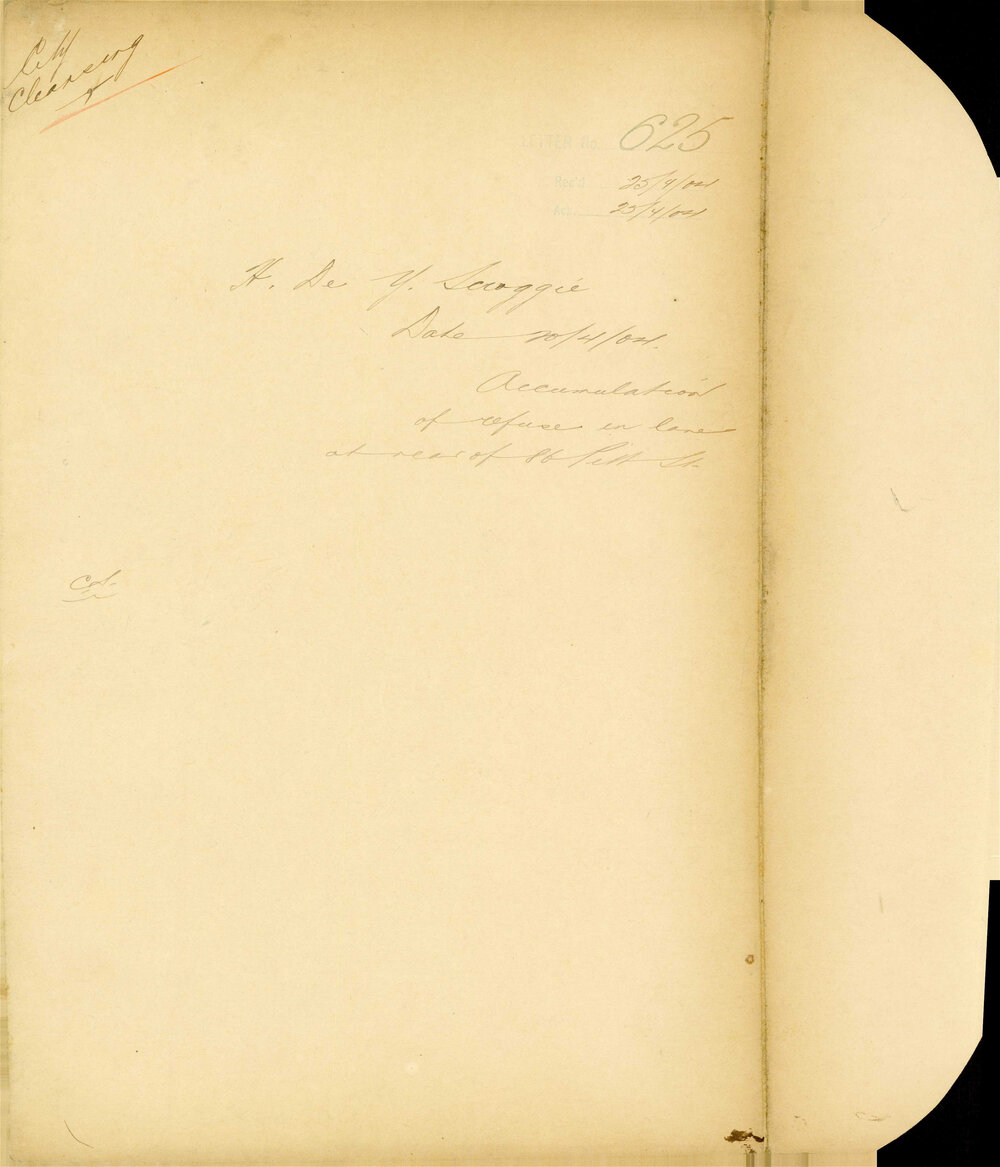 City
Cleansing
LETTER No. 625
Rec'd 25/4/04
Ack. 25/4/04
H. De Y. Scroggie
Date 20/4/04.
Accumulation
of refuse in lane
at rear of 86 Pitt St.